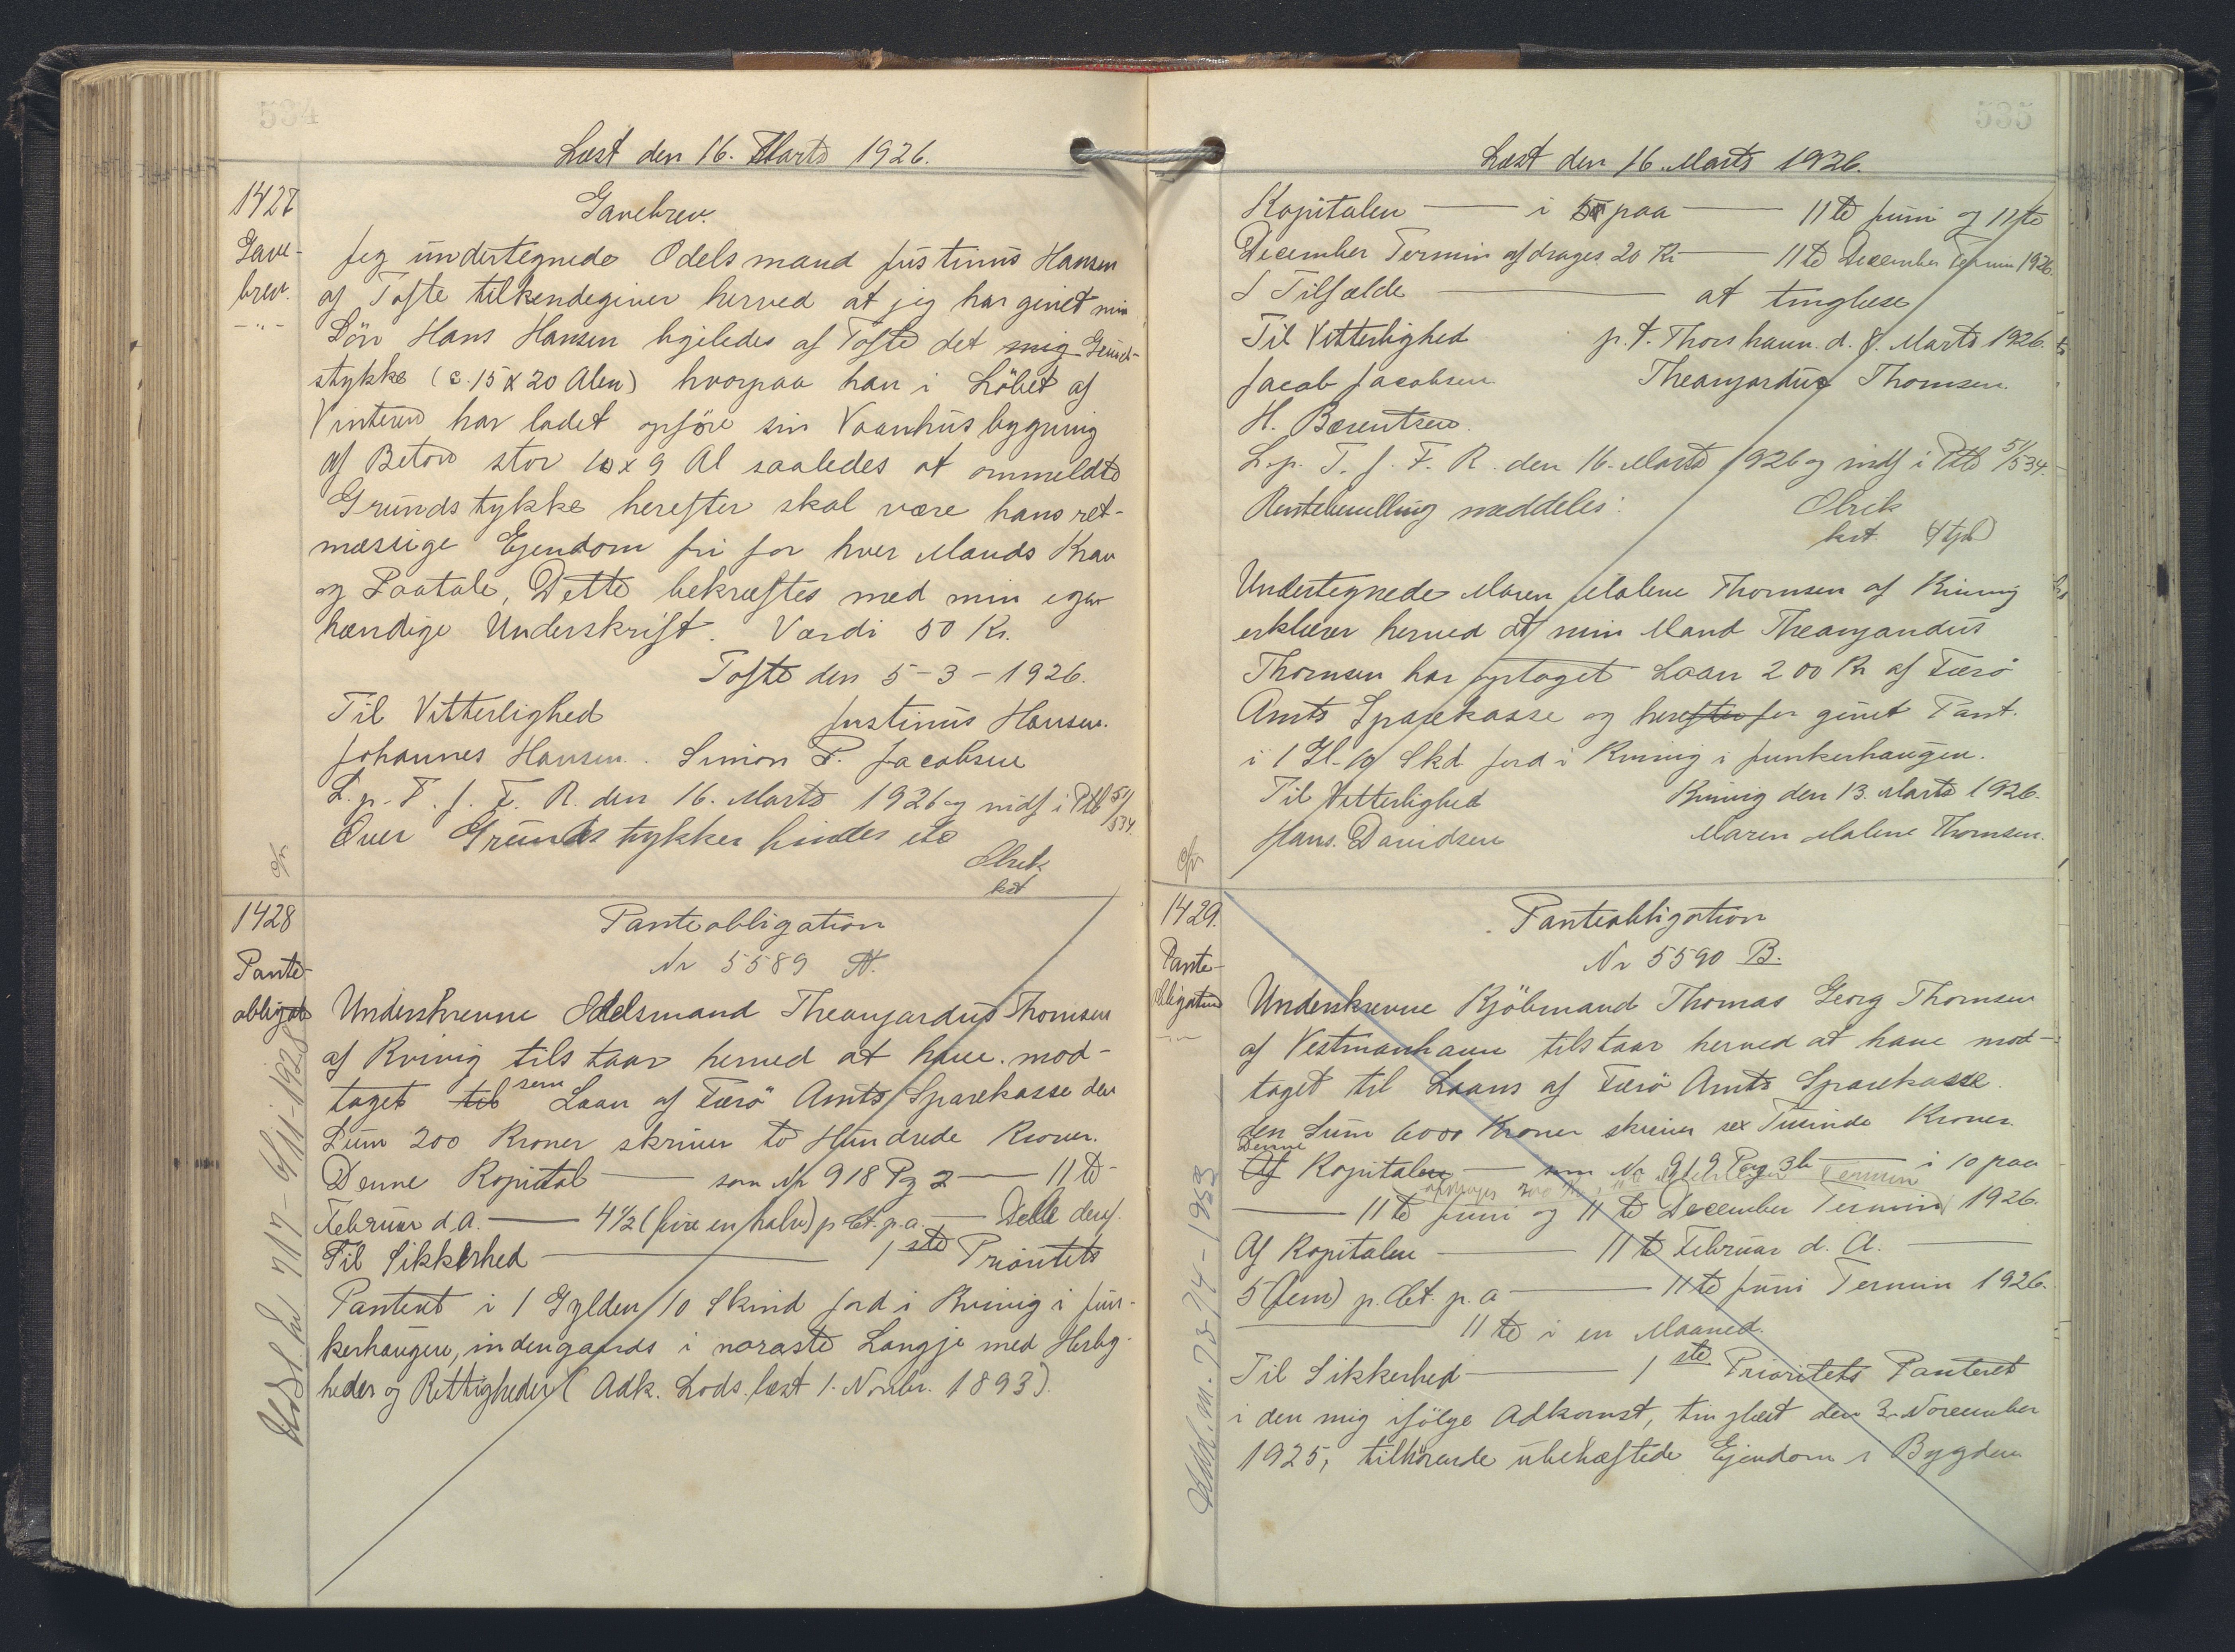 534
Læst den 16. Marts 1926.
1427
Gave-
brev.
Gavebrev.
Jeg undertegnede Odelsmand Justinus Hansen
af Tofte tilkendegiver herved at jeg har givet min
Sön Hans Hansen ligeledes af Tofte det mig Grund-
stykke (c. 15 x 20 Alen) hvorpaa han i Löbet af
Vinteren har ladet opföre sin Vaanhusbygning
af Beton stor 10 x 9 Al saaledes at ommeldte
Grundstykke herefter skal være hans ret-
mæssige Ejendom fri for hver Mands Krav
og Paatale, Dette bekræftes med min egen
hændige Underskrift. Værdi 50 Kr.
Tofte den 5-3-1926.
Til Vitterlighed
Justinus Hansen.
Johannes Hansen. Simon P. Jacobsen
L. p. T. f. F. R. den 16. Marts 1926 og indf i Ptb 51/534.
Over Grundstykker findes etc
Olrik
kst
1428
Pante-
obligat
Panteobligation
Nr 5589 A.
Underskrevne Odelsmand Theangardus Thomsen
af Kvivig tilstaar herved at have mod-
taget til som Laan af Færö Amts Sparekasse den
Sum 200 Kroner skriver to Hundrede Kroner.
Denne Kapital — som Nr 918 Pg 2 — 11te
Februar d.A. — 4½ (fire en halv) p Ct. p.a. —
Til Sikkerhed — 1ste Prioritets
Panteret i 1 Gylden 10 Skind Jord i Kvivig i Jun-
kerhaugen, indengards i noraste Langje med Herlig-
heder og Rettigheder (Adk. Lods. læst 1. Novbr. 1893).
535
Læst den 16. Marts 1926.
Kapitalen — i paa — 11te Juni og 11te
December Termin afdrages 20 Kr — 11te December Termin 1926.
I Tilfælde — at tinglæse
Til Vitterlighed p. t. Thorshavn. d. 8. Marts 1926.
Jacob Jacobsen Theangardus Thomsen.
H. Bærentsen.
L. p. T. f. F. R. den 16. Marts 1926 og indf i Ptb 51/534.
Rentebevilling meddeles: Olrik
kst.
Undertegnede Maren Malene Thomsen af Kvivig
erklærer herved at min Mand Theangardus
Thomsen har optaget Laan 200 Kr af Færö
Amts Sparekasse og herefter for givet Pant.
i 1 Gl. 10 Skd Jord i Kvivig i Junkerhaugen.
Til Vitterlighed Kvivig den 13. Marts 1926.
Hans. Davidsen Maren Malene Thomsen.
1429.
Pante-
obligation
Panteobligation
Nr 5590 B.
Underskrevne Kjöbmand Thomas Georg Thomsen
af Vestmanhavn tilstaar herved at have mod-
taget til Laans af Færö Amts Sparekasse
den Sum 6000 Kroner skriver sex Tusinde Kroner.
Denne
Af Kapitalen — som No 919 Pag 3b — i 10 paa
— 11te Juni og 11te December Termin 1926.
Af Kapitalen — 11te Februar d. A. —
5 (fem) p. Ct. p. a — 11te Juni Termin 1926.
— 11te i en Maaned.
Til Sikkerhed — 1ste Prioritets Panteret
i den mig ifölge Adkomst, tinglæst den 3. November
1925, tilhörende ubehæftede Ejendom i Bygden